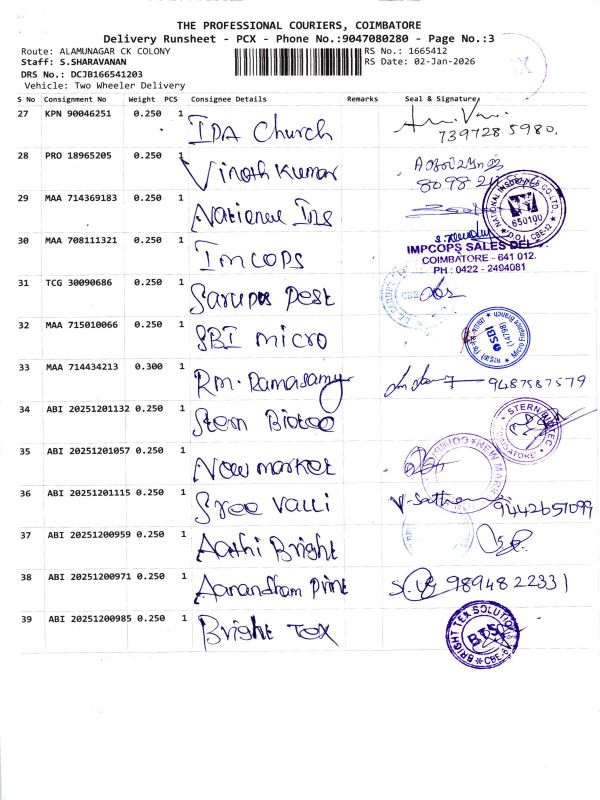 THE PROFESSIONAL COURIERS, COIMBATORE
Delivery Runsheet - PCX - Phone No.:9047080280 - Page No.:3
Route: ALAMUNAGAR CK COLONY
RS No.: 1665412
Staff: S.SHARAVANAN
RS Date: 02-Jan-2026
DRS No.: DCJB166541203
Vehicle: Two Wheeler Delivery
S No Consignment No Weight PCS Consignee Details Remarks Seal & Signature
27 KPN 90046251 0.250 1 IDA Church
7397285980.
28 PRO 18965205 0.250 1 Vinoth Kumar
8098
29 MAA 714369183 0.250 1 National Ins
NATIONAL INSURANCE CO.LTD. 650100 D.O.I. CBE-12
30 MAA 708111321 0.250 1 Imcops
IMPCOPS SALES DEP
COIMBATORE - 641 012.
PH : 0422 - 2494081
31 TCG 30090686 0.250 1 Sarupa Pest
CBE
32 MAA 715010066 0.250 1 SBI micro
SBI (14798) Micro Finance Branch
33 MAA 714434213 0.300 1 Rm. Ramasamy
9487587579
34 ABI 20251201132 0.250 1 Stern Biotec
STERN BIOTEC COIMBATORE
35 ABI 20251201057 0.250 1 New market
NEW MARK
36 ABI 20251201115 0.250 1 Sree Valli
9442651099
37 ABI 20251200959 0.250 1 Aathi Bright
38 ABI 20251200971 0.250 1 Aanandham Print
9894822331
39 ABI 20251200985 0.250 1 Bright Tex
BRIGHT TEX SOLUTION BTS CBE-6